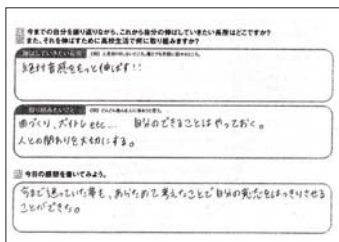 今までの自分を振り返りながら、これから自分の伸ばしていきたい長所はどこですか？
また、それを伸ばすために高校生活で何に取り組みますか？
伸ばしていきたい長所
絶対音感をもっと伸ばす!!
取り組みたいこと
曲づくり、ボイトレetc... 自分のできることはやっておく。
人との関わりを大切にする。
今日の感想を書いてみよう。
今まで迷っていた夢も、あらためて考えたことで自分の意志をはっきりさせる
ことができた。